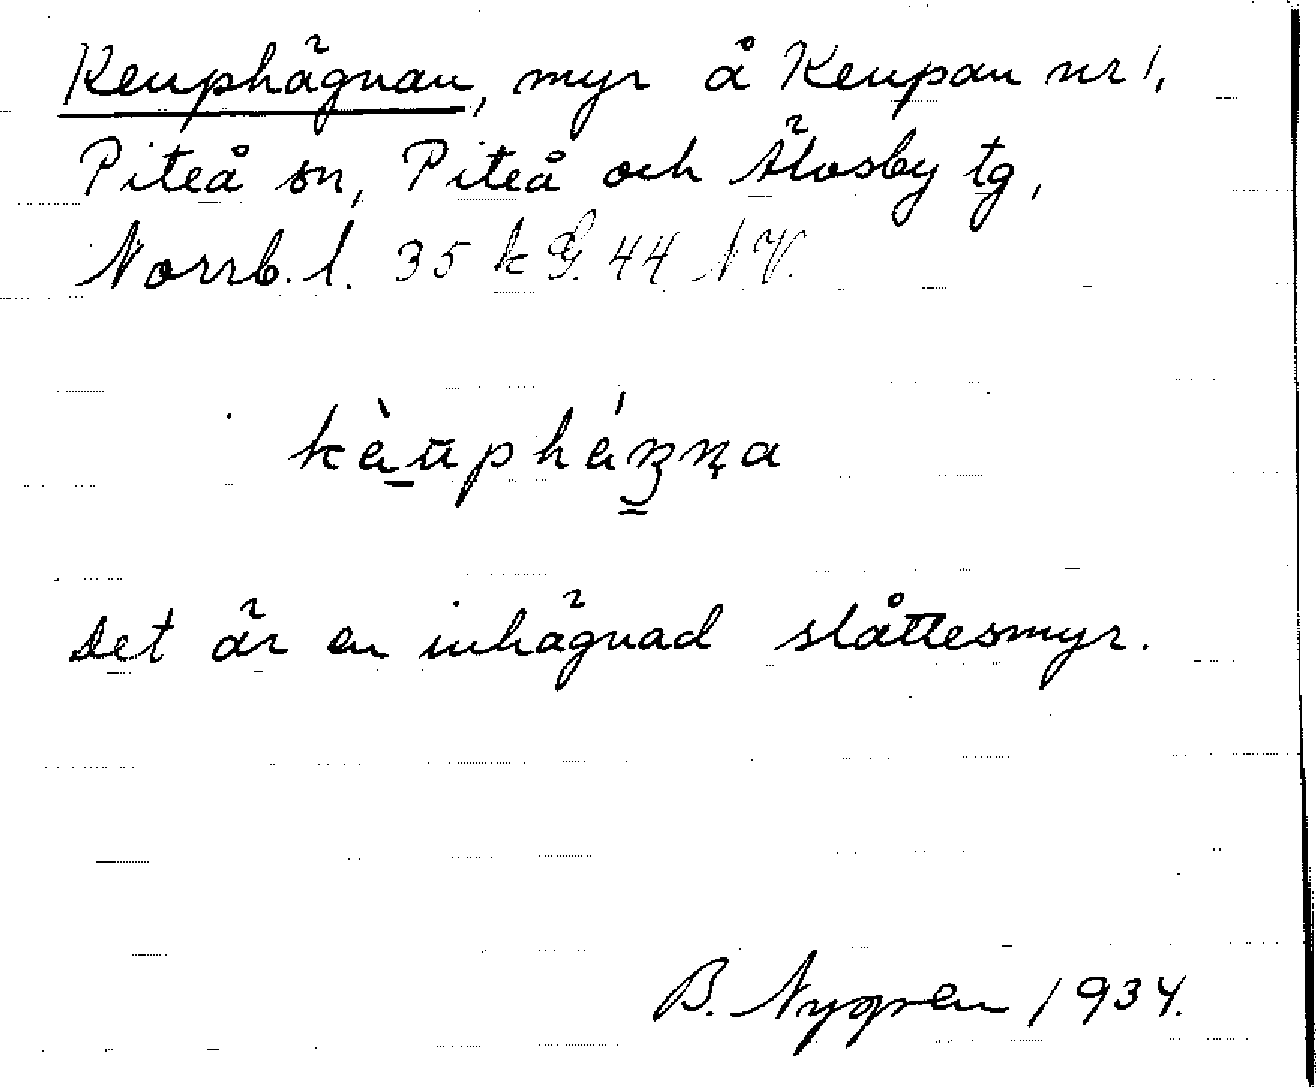 Keuphägnan, myr å Keupan nr 1,
Piteå sn, Piteå och Älvsby tg,
Norrb. l. 35 k G. 44 NV.
kèu̅phéŋŋa
Det är en inhägnad slåttesmyr.
B. Nygren 1934.